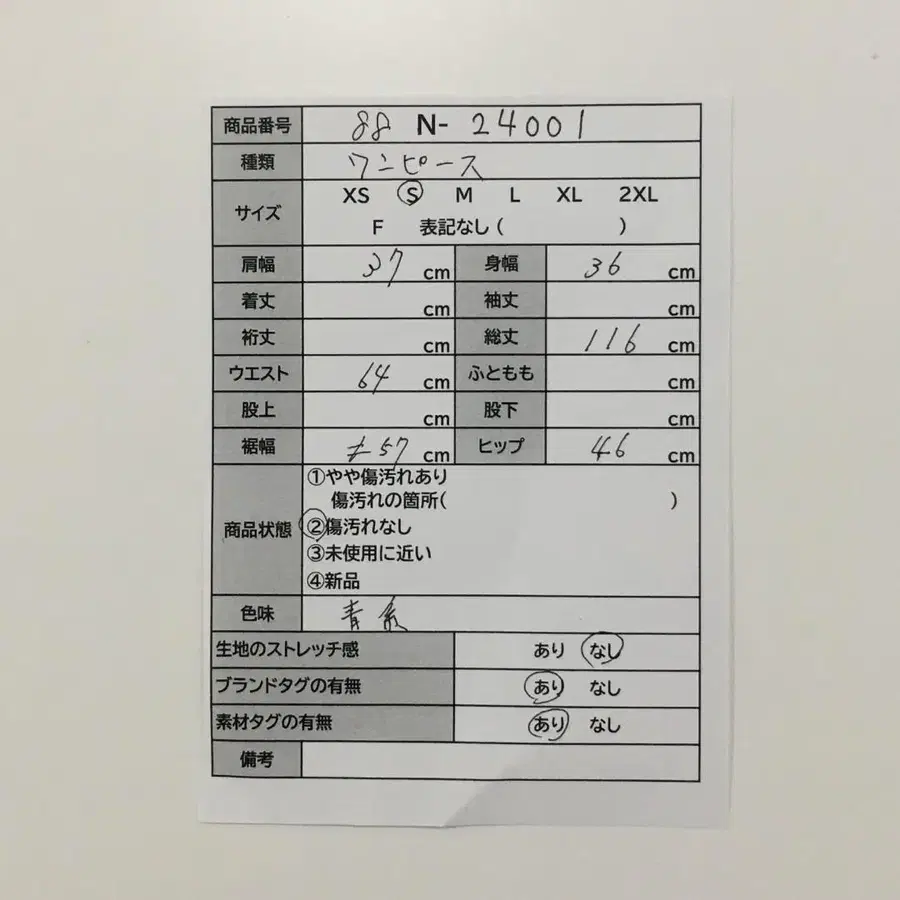 商品番号 88 N- 24001
種類 ワンピース
サイズ XS S M L XL 2XL
F 表記なし ( )
肩幅 37 cm 身幅 36 cm
着丈 cm 袖丈 cm
裄丈 cm 総丈 116 cm
ウエスト 64 cm ふともも cm
股上 cm 股下 cm
裾幅 ≠57 cm ヒップ 46 cm
商品状態 ①やや傷汚れあり
傷汚れの箇所( )
②傷汚れなし
③未使用に近い
④新品
色味 青系
生地のストレッチ感 あり なし
ブランドタグの有無 あり なし
素材タグの有無 あり なし
備考